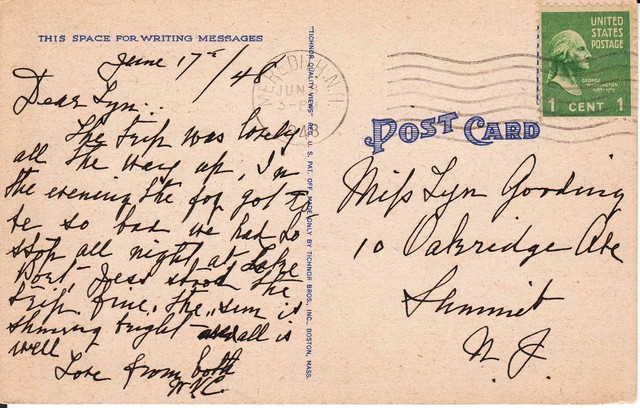 THIS SPACE FOR WRITING MESSAGES
June 17th/48
Dear Lyn..
The trip was lovely
all the way up, In
the evening the fog got to
be so bad we had to
stop all night at Lake
Port, Jess stood the
trip fine. The sun is
shining bright and all is
well
Love from both
"TICHNOR QUALITY VIEWS" REG. U. S. PAT. OFF. MADE ONLY BY TICHNOR BROS., INC., BOSTON, MASS.
MEREDITH, N.H.
JUN
3-P
48
UNITED
STATES
POSTAGE
GEORGE WASHINGTON
1 CENT 1
POST CARD
Miss Lyn Gooding
10 Oakridge Ave
Summit
N. J.